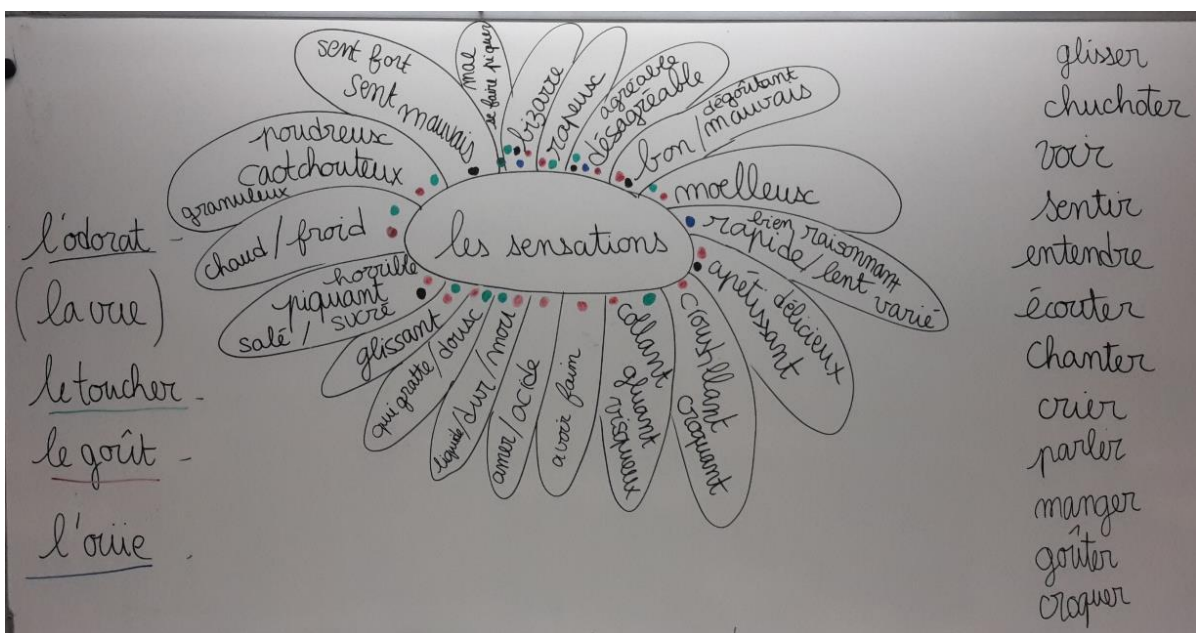 l'odorat -
(la vue)
le toucher -
le goût -
l'oüie .
les sensations
sent fort
sent mauvais
mal
se faire piquer
bizarre
rapeux
agréable
désagréable
dégoûtant
bon / mauvais
moelleux
bien raisonnant
rapide / lent varié
délicieux
apétissant
croustillant
croquant
collant
gluant
visqueux
avoir faim
amer / acide
liquide / dur / mou
qui gratte / doux
glissant
horrible
piquant
salé / sucré
chaud / froid
poudreux
caotchouteux
granuleux
glisser
chuchoter
voir
sentir
entendre
écouter
chanter
crier
parler
manger
goûter
croquer